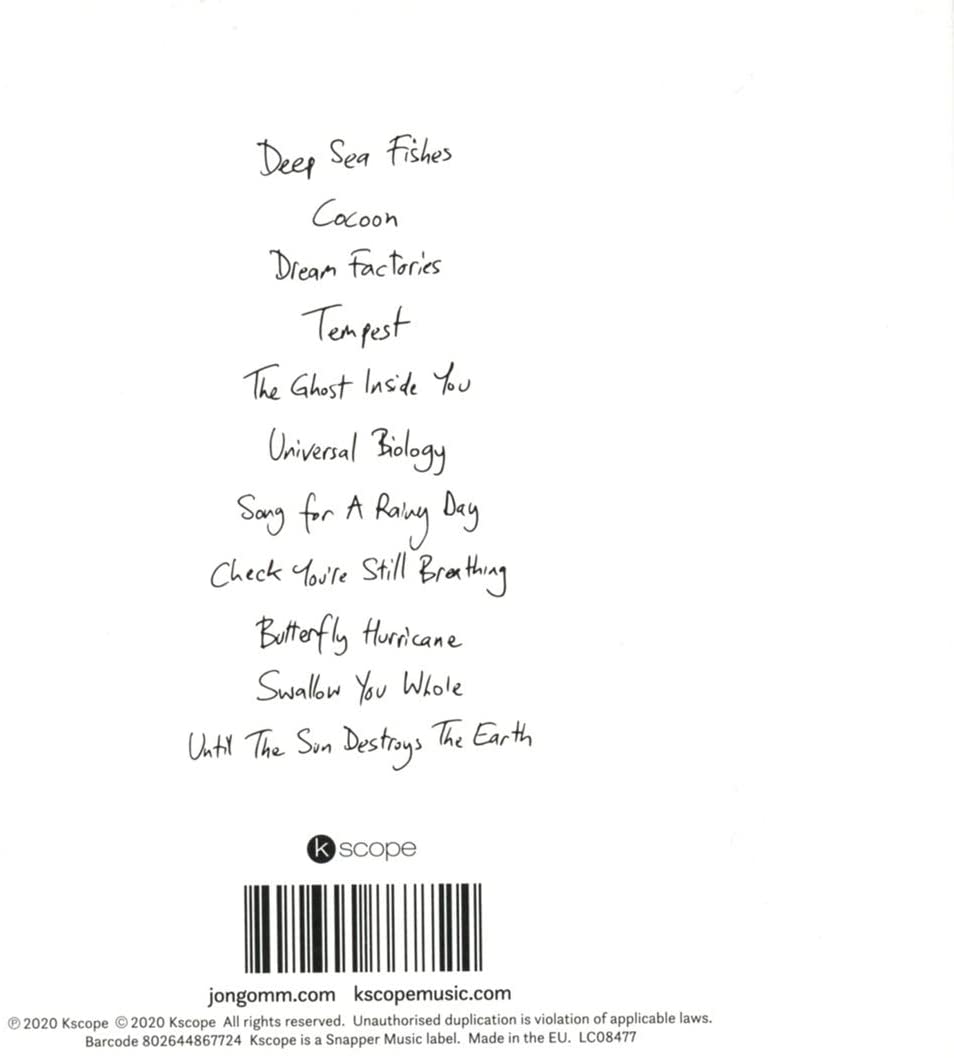 Deep Sea Fishes
Cocoon
Dream Factories
Tempest
The Ghost Inside You
Universal Biology
Song for A Rainy Day
Check You're Still Breathing
Butterfly Hurricane
Swallow You Whole
Until The Sun Destroys The Earth
kscope
jongomm.com kscopemusic.com
℗ 2020 Kscope © 2020 Kscope All rights reserved. Unauthorised duplication is violation of applicable laws.
Barcode 802644867724 Kscope is a Snapper Music label. Made in the EU. LC08477